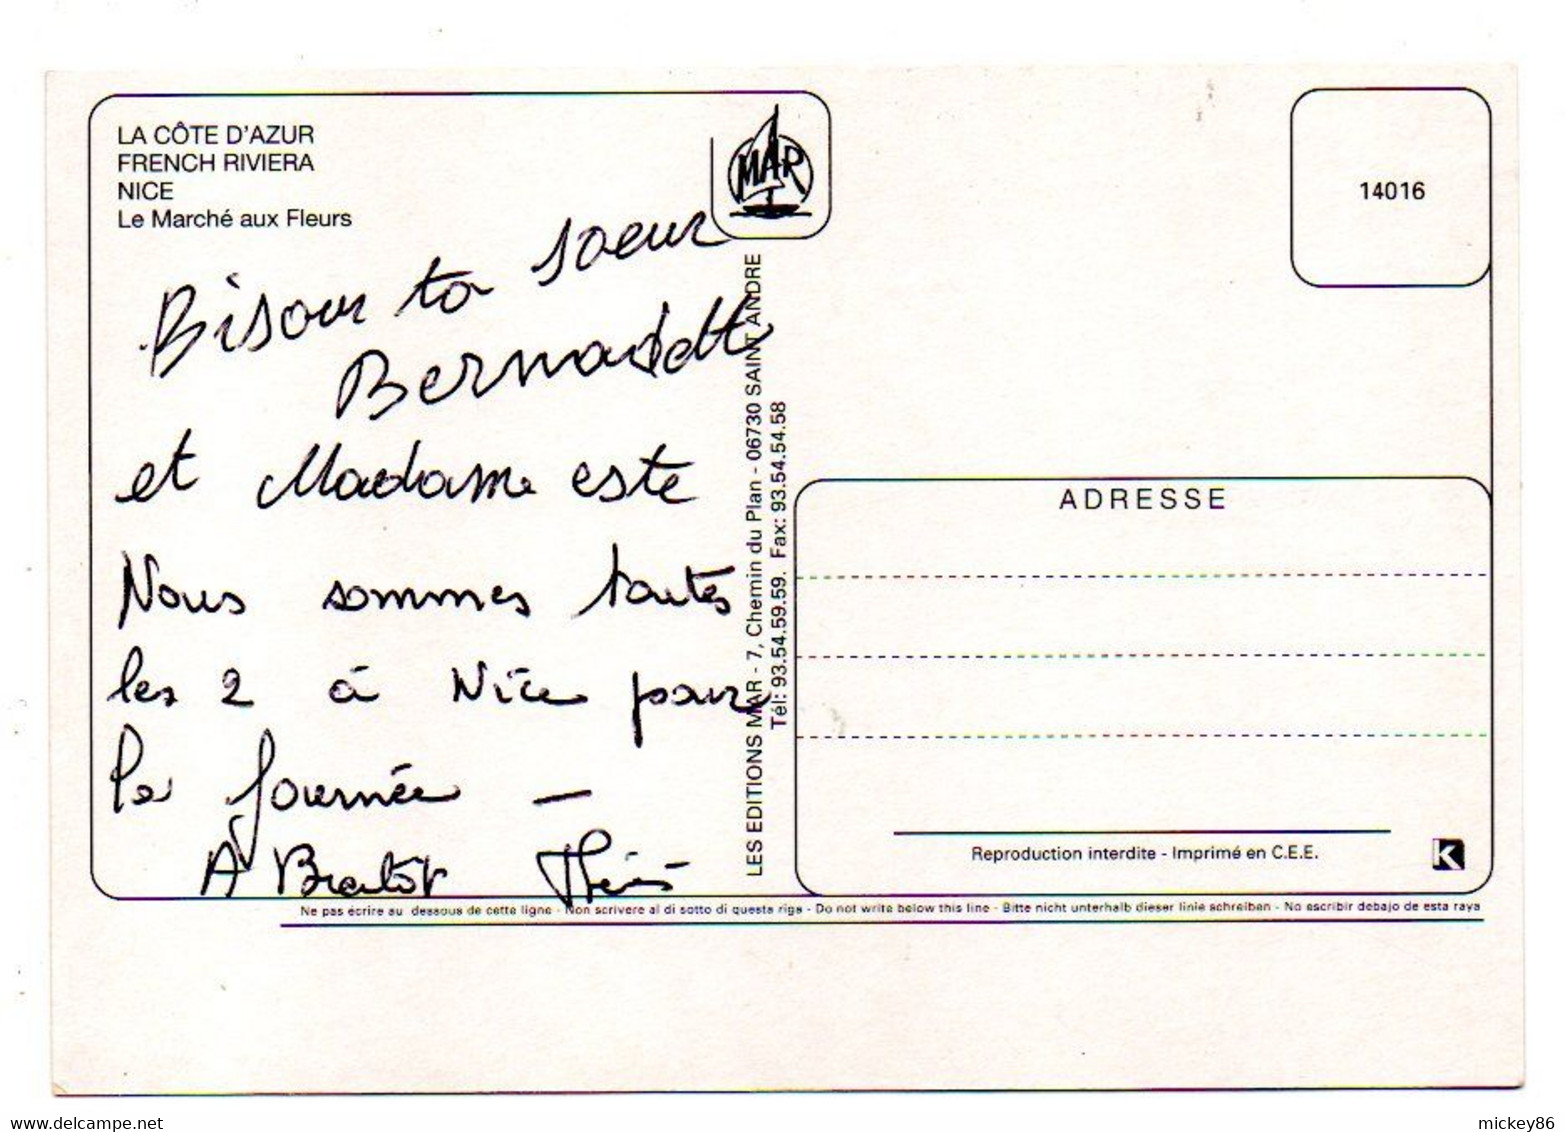 LA CÔTE D'AZUR
FRENCH RIVIERA
NICE
Le Marché aux Fleurs
MAR
14016
Bisour ta soeur
Bernadett
et Madame este
Nous sommes toutes
les 2 à Nice pour
la journée —
A Bientôt
LES EDITIONS MAR - 7, Chemin du Plan - 06730 SAINT ANDRE
Tél: 93.54.59.59. Fax: 93.54.54.58
ADRESSE
Reproduction interdite - Imprimé en C.E.E.
K
Ne pas écrire au dessous de cette ligne - Non scrivere al di sotto di questa riga - Do not write below this line - Bitte nicht unterhalb dieser linie schreiben - No escribir debajo de esta raya
mickey86